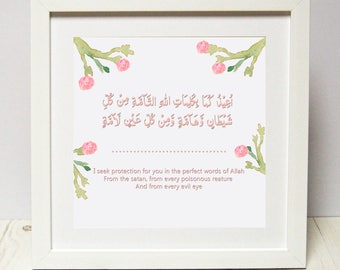 أُعِيذُ كُمَا بِكَلِمَاتِ اللهِ التَّامَّةِ مِنْ كُلِّ
شَيْطَانٍ وَهَامَّةٍ وَمِنْ كُلِّ عَيْنٍ لَامَّةٍ
I seek protection for you in the perfect words of Allah
From the satan, from every poisonous reature
And from every evil eye